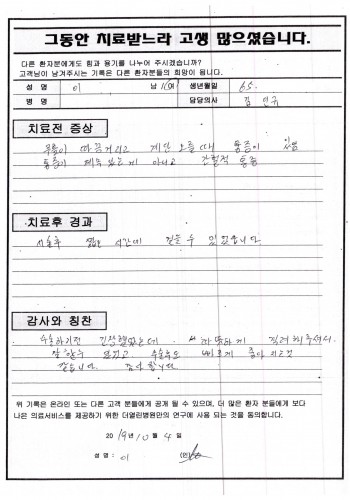 그동안 치료받느라 고생 많으셨습니다.
다른 환자분에게도 힘과 용기를 나누어 주시겠습니까?
고객님이 남겨주시는 기록은 다른 환자분들의 희망이 됩니다.
성 명 이 남 여 생년월일 65.
병 명 담당의사 김
치료전 증상
무릎이 따끔거리고 계단 오를때 통증이 있음
통증이 계속 있는게 아니고 간헐적 통증
치료후 경과
시술후 짧은 시간에 걸을수 있었습니다
감사와 칭찬
수술하기전 긴장했었는데 따뜻하게 격려해주셔서
수술후도 빠르게 좋아
같습니다. 감사합니다
위 기록은 온라인 또는 다른 고객 분들에게 공개 될 수 있으며, 더 많은 환자 분들에게 보다
나은 의료서비스를 제공하기 위한 더열린병원만의 연구에 사용 되는 것을 동의합니다.
2019년 10월 4일
성 명 : 이 (인)